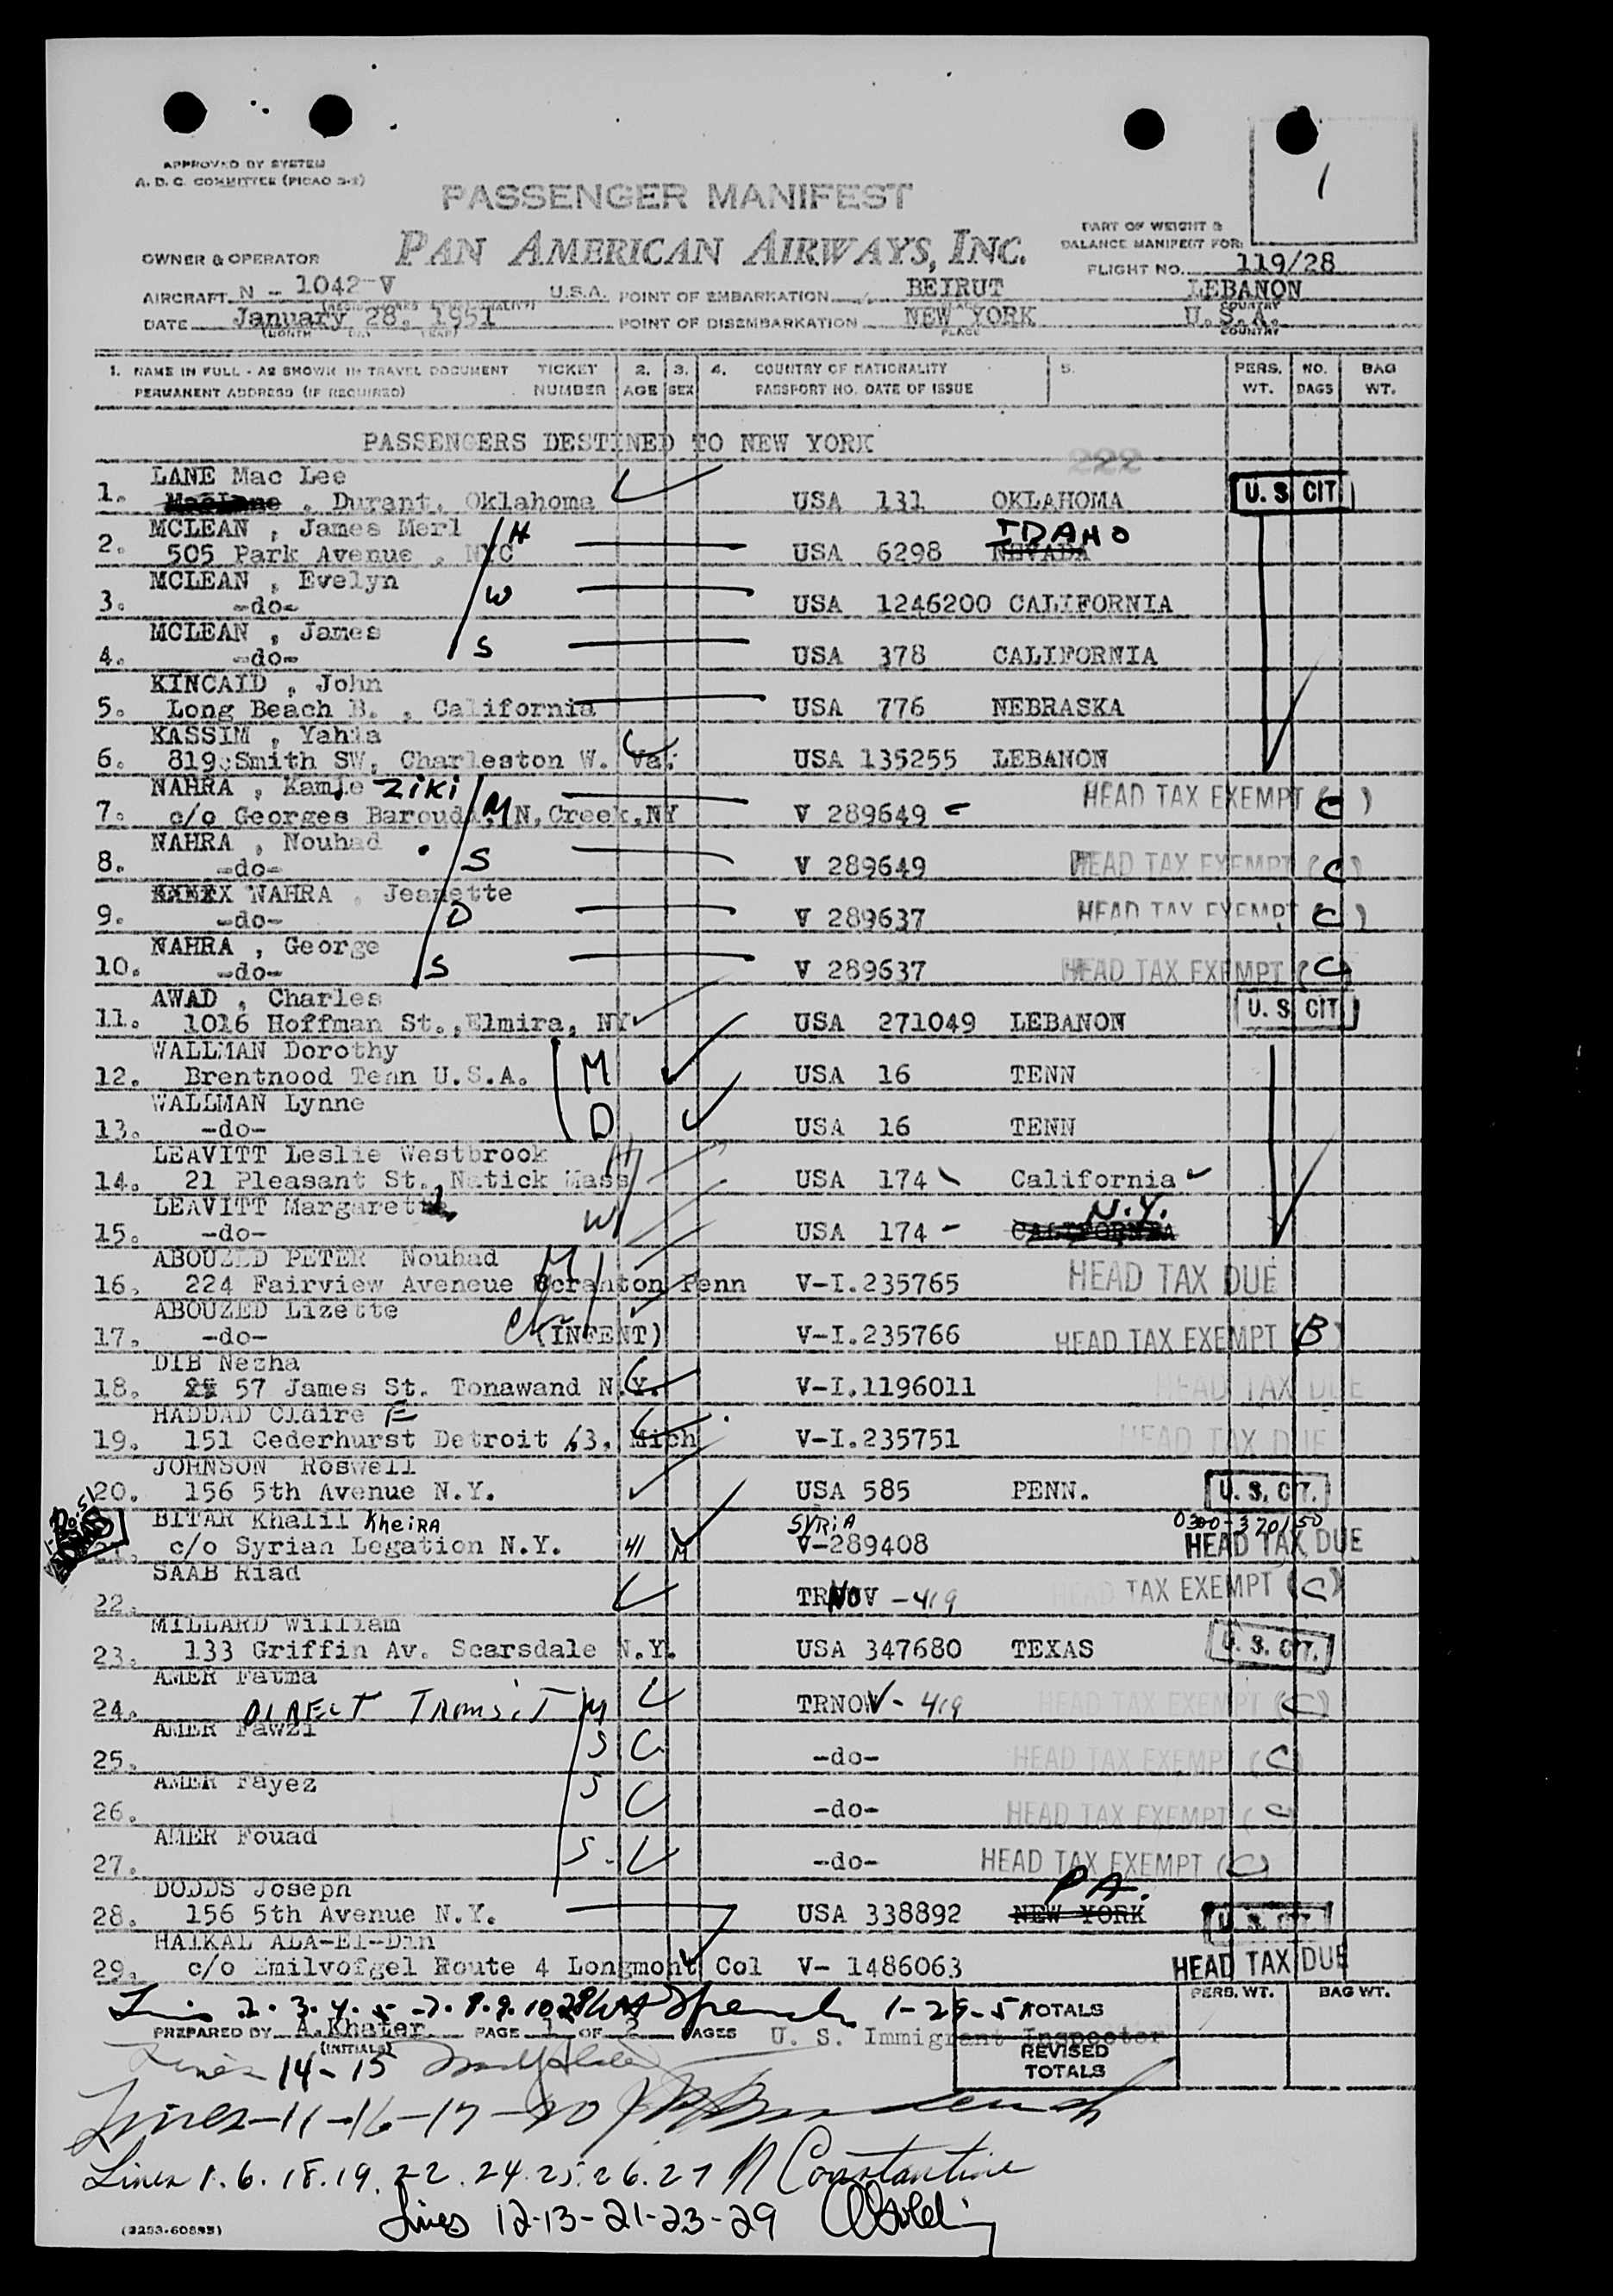 1
APPROVED BY SYSTEM
A. D. C. COMMITTEE (PICAO 2-1)
PASSENGER MANIFEST
PAN AMERICAN AIRWAYS, INC.
PART OF WEIGHT &
BALANCE MANIFEST FOR:
OWNER & OPERATOR
FLIGHT NO. 119/28
AIRCRAFT N - 1042-V U.S.A. POINT OF EMBARKATION BEIRUT LEBANON
PLACE COUNTRY
DATE January 28, 1951 POINT OF DISEMBARKATION NEW YORK U.S.A.
(MONTH DAY YEAR) PLACE COUNTRY
1. NAME IN FULL - AS SHOWN IN TRAVEL DOCUMENT TICKET 2. 3. 4. COUNTRY OF NATIONALITY 5. PERS. NO. BAG
PERMANENT ADDRESS (IF REQUIRED) NUMBER AGE SEX PASSPORT NO. DATE OF ISSUE WT. BAGS WT.
PASSENGERS DESTINED TO NEW YORK
222
LANE Mac Lee
1. , Durant, Oklahoma USA 131 OKLAHOMA U. S. CIT
MCLEAN , James Merl H IDAHO
2. 505 Park Avenue , NYC USA 6298 NEVADA
MCLEAN , Evelyn W
3. -do- USA 1246200 CALIFORNIA
MCLEAN , James
4. -do- S USA 378 CALIFORNIA
KINCAID , John
5. Long Beach B. , California USA 776 NEBRASKA
KASSIM , Yahia
6. 819 Smith SW, Charleston W. Va. USA 135255 LEBANON
NAHRA , Kamle ZIKI HEAD TAX EXEMPT (C)
7. c/o Georges Baroudi M N,Creek,NY V 289649
NAHRA , Nouhad
8. -do- S V 289649 HEAD TAX EXEMPT (C)
NAHRA , Jeanette
9. -do- D V 289637 HEAD TAX EXEMPT (C)
NAHRA , George
10. -do- S V 289637 HEAD TAX EXEMPT (C)
AWAD , Charles
11. 1016 Hoffman St., Elmira, NY USA 271049 LEBANON U. S. CIT
WALLMAN Dorothy
12. Brentnood Tenn U.S.A. M USA 16 TENN
WALLMAN Lynne
13. -do- D USA 16 TENN
LEAVITT Leslie Westbrook H
14. 21 Pleasant St., Natick Mass USA 174 California
LEAVITT Margaret N.Y.
15. -do- W USA 174 CALIFORNIA
ABOUZED PETER Nouhad M
16. 224 Fairview Aveneue Scranton Penn V-I.235765 HEAD TAX DUE
ABOUZED Lizette
17. -do- (INFENT) V-I.235766 HEAD TAX EXEMPT (B)
DIB Nezha
18. 57 James St. Tonawand N.Y. V-I.1196011 HEAD TAX DUE
HADDAD Claire E
19. 151 Cederhurst Detroit 63, Mich V-I.235751 HEAD TAX DUE
JOHNSON Roswell
20. 156 5th Avenue N.Y. USA 585 PENN. U. S. CIT.
BITAR Khalil KheiRA SYRIA 0300-370150
21. c/o Syrian Legation N.Y. 41 M V-289408 HEAD TAX DUE
SAAB Riad
22. TRNOV -419 HEAD TAX EXEMPT (C)
MILLARD William
23. 133 Griffin Av. Scarsdale N.Y. USA 347680 TEXAS U. S. CIT.
AMER Fatma
24. DIRECT TRANSIT M TRNOV - 419 HEAD TAX EXEMPT (C)
AMER Fawzi S
25. -do- HEAD TAX EXEMPT (C)
AMER Fayez S
26. -do- HEAD TAX EXEMPT (C)
AMER Fouad
27. S -do- HEAD TAX EXEMPT (C)
DODDS Joseph PA.
28. 156 5th Avenue N.Y. USA 338892 NEW YORK U. S. CIT.
HAIKAL ALA-El-Din
29. c/o Emilvofgel Route 4 Longmont Col V- 1486063 HEAD TAX DUE
Lines 2. 3. 4. 5 - 7. 8. 9. 10 28 1-29-51 TOTALS PERS. WT. BAG WT.
PREPARED BY A.Khater PAGE 1 OF 2 PAGES U. S. Immigrant Inspector
(INITIALS) REVISED TOTALS
Lines 14-15
Lines-11-16-17-20
Lines 1. 6. 18. 19. 22. 24. 25. 26. 27 N Constantine
Lines 12-13-21-23-29
(2253-60885)